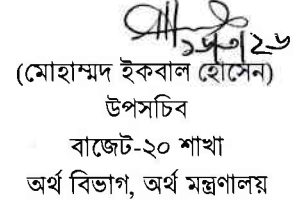 (মোহাম্মদ ইকবাল হোসেন)
উপসচিব
বাজেট-২০ শাখা
অর্থ বিভাগ, অর্থ মন্ত্রণালয়